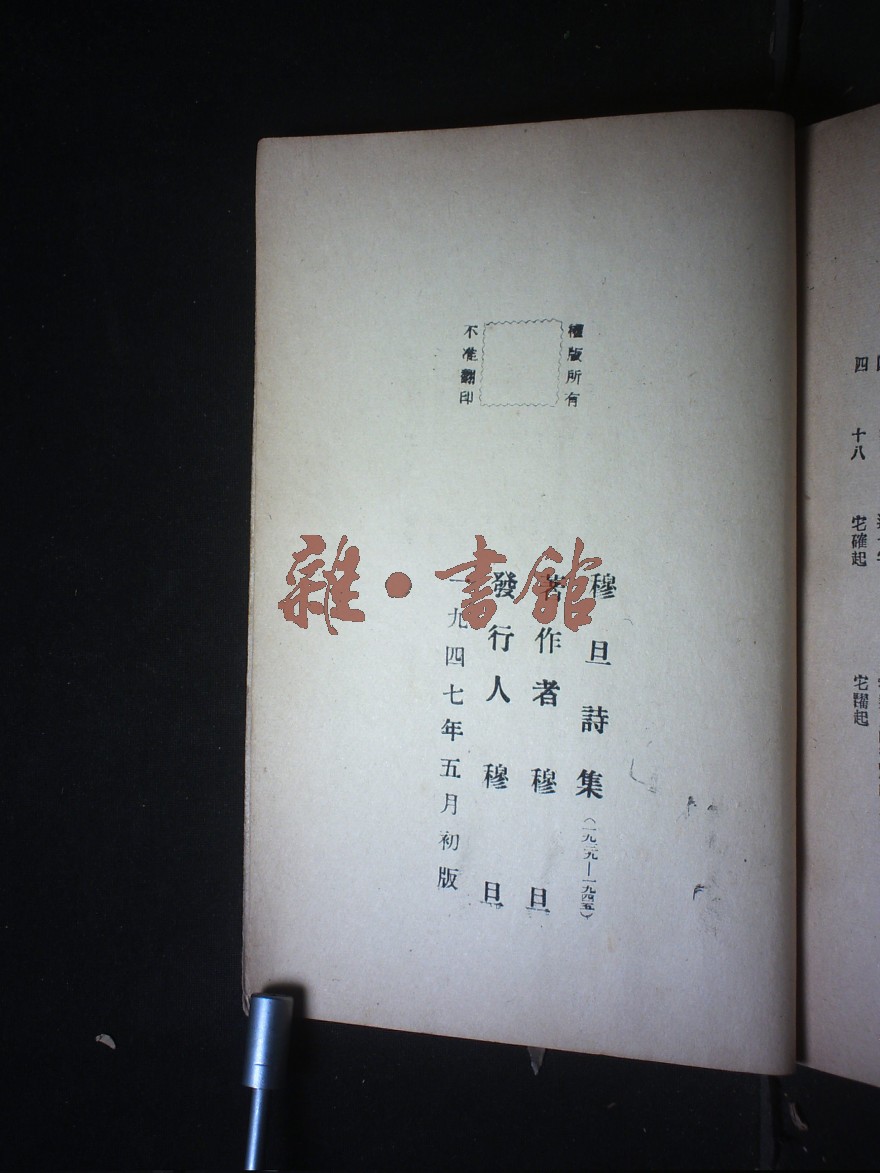 權版所有
不准翻印
穆旦詩集（一九三九—一九四五）
著作者 穆旦
發行人 穆旦
一九四七年五月初版
雜·書館
四 十八 宅確起 宅躍起